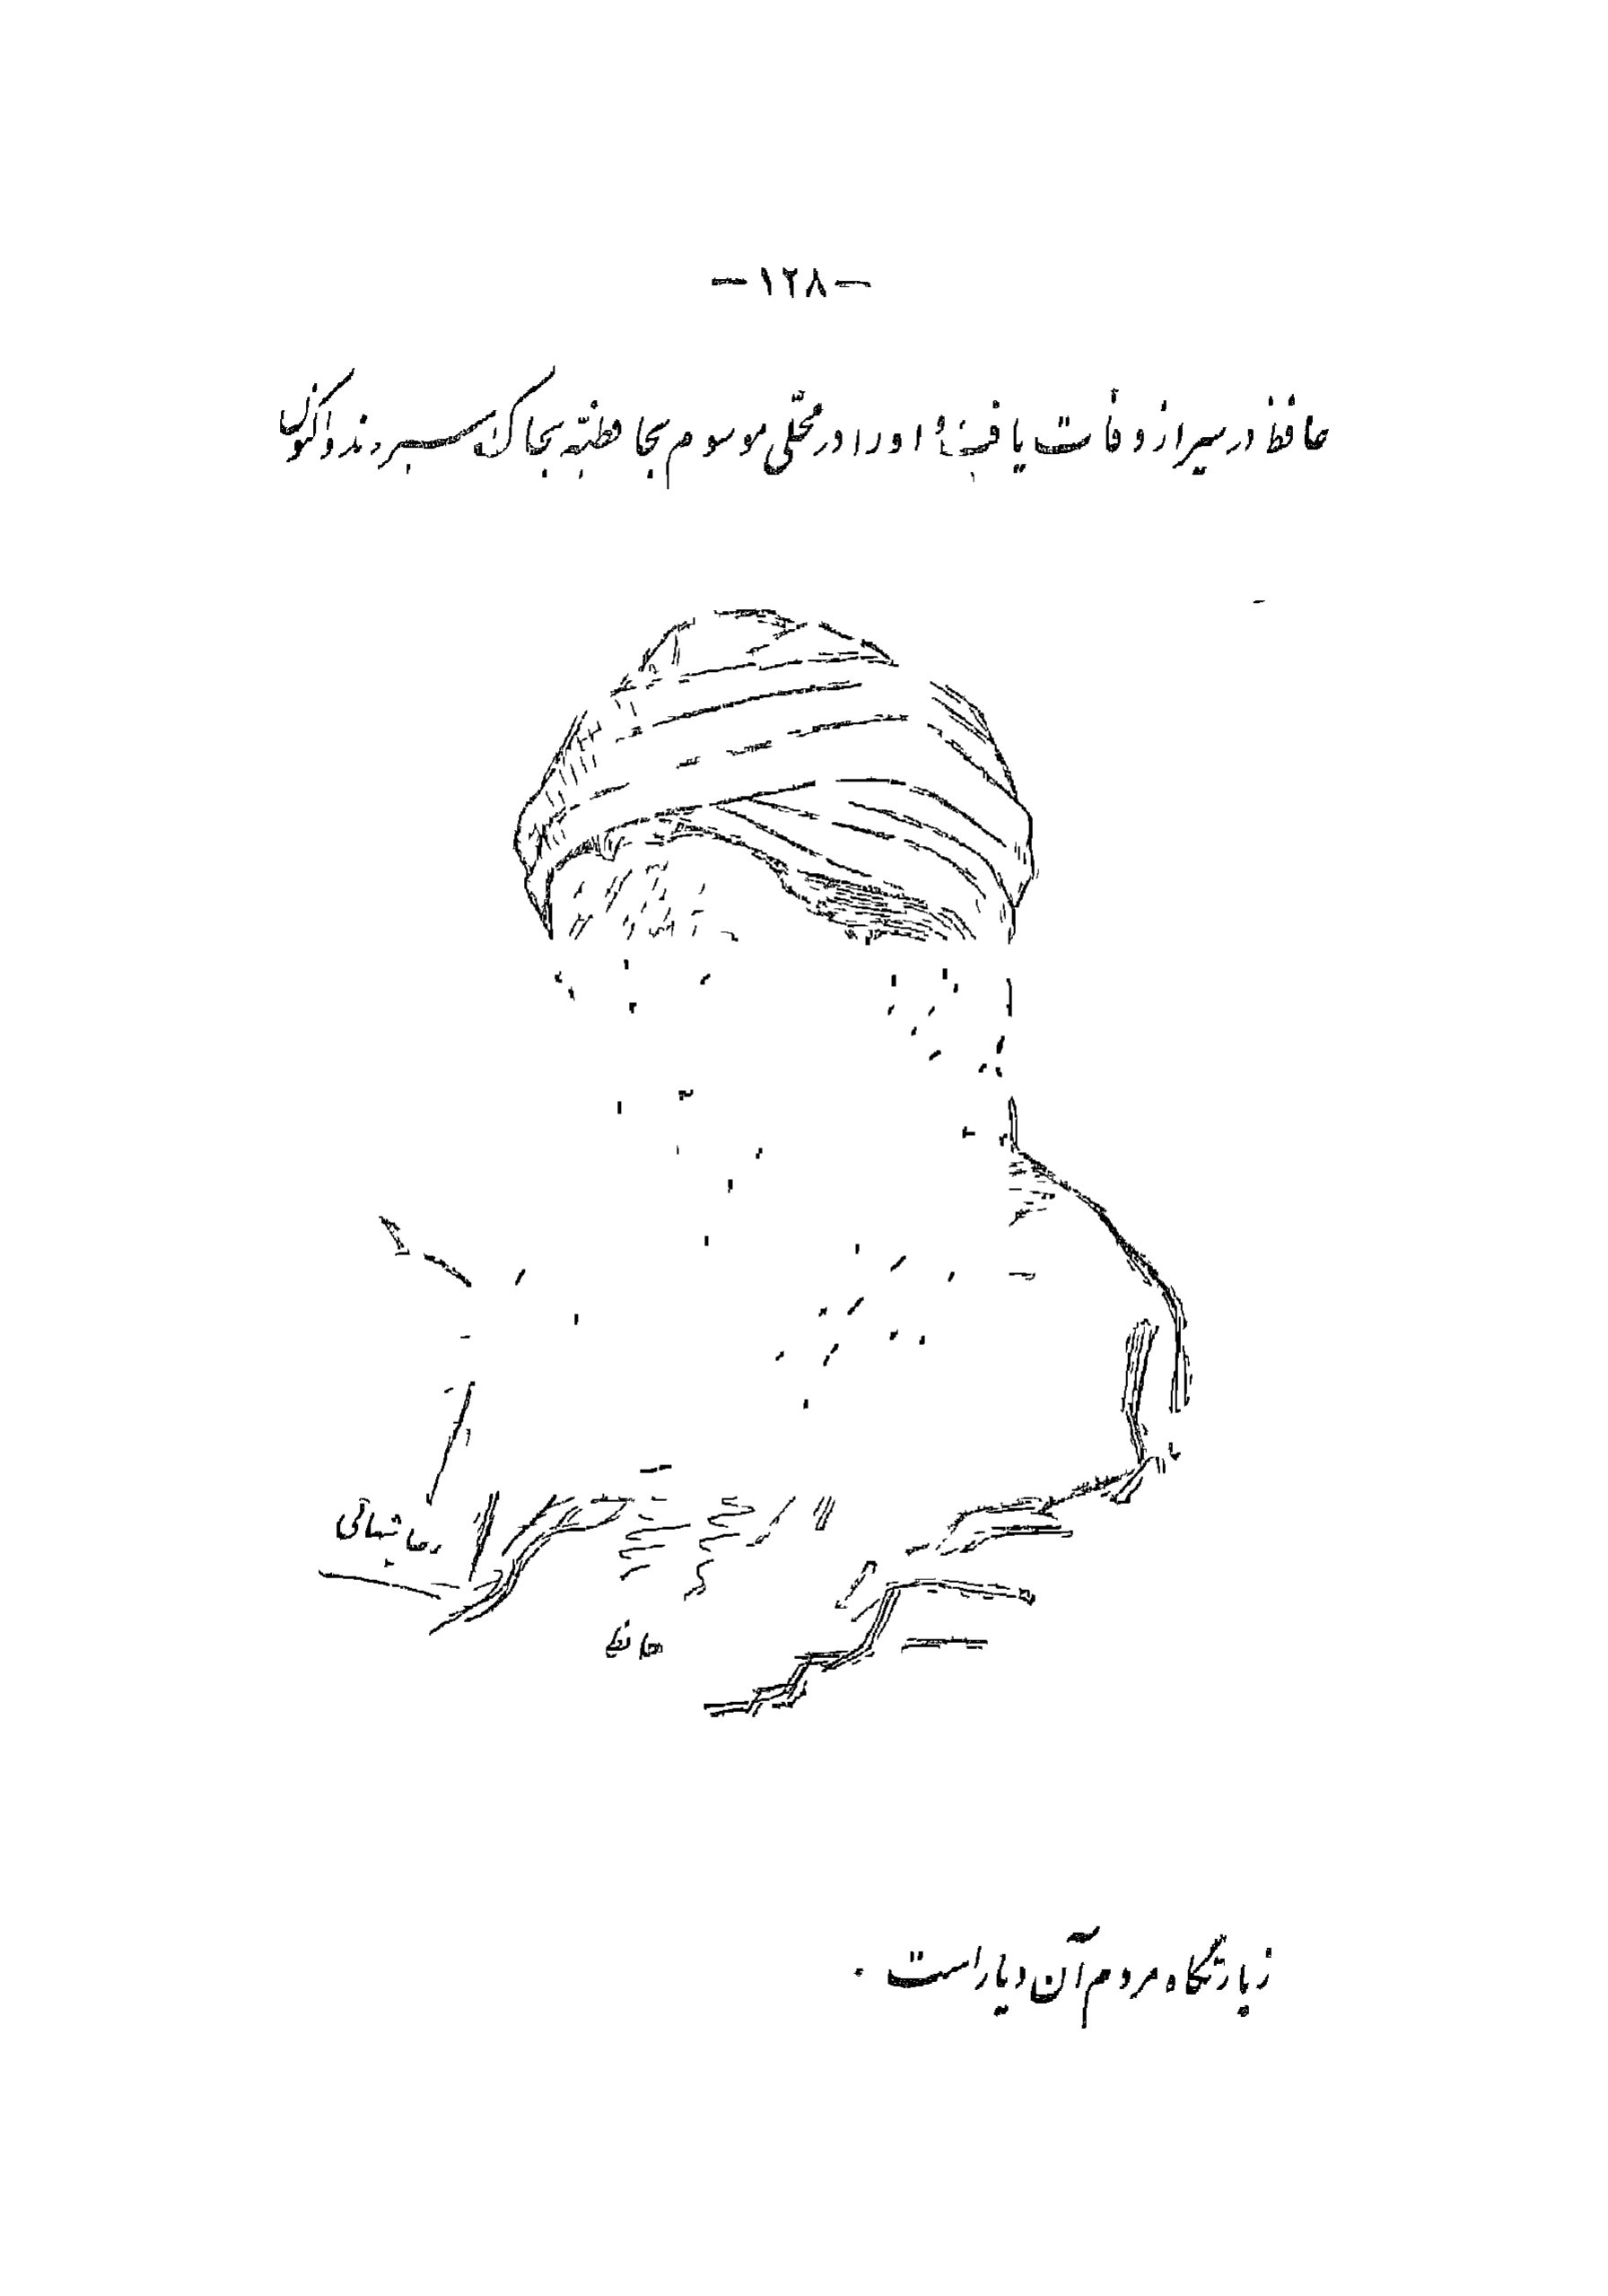 -۱۲۸-
حافظ در شیراز وفات یافت و او را در محلی موسوم بحافظیّه بخاک سپردند و اکنون
حافظ
زیارتگاه مردم آن دیار است .